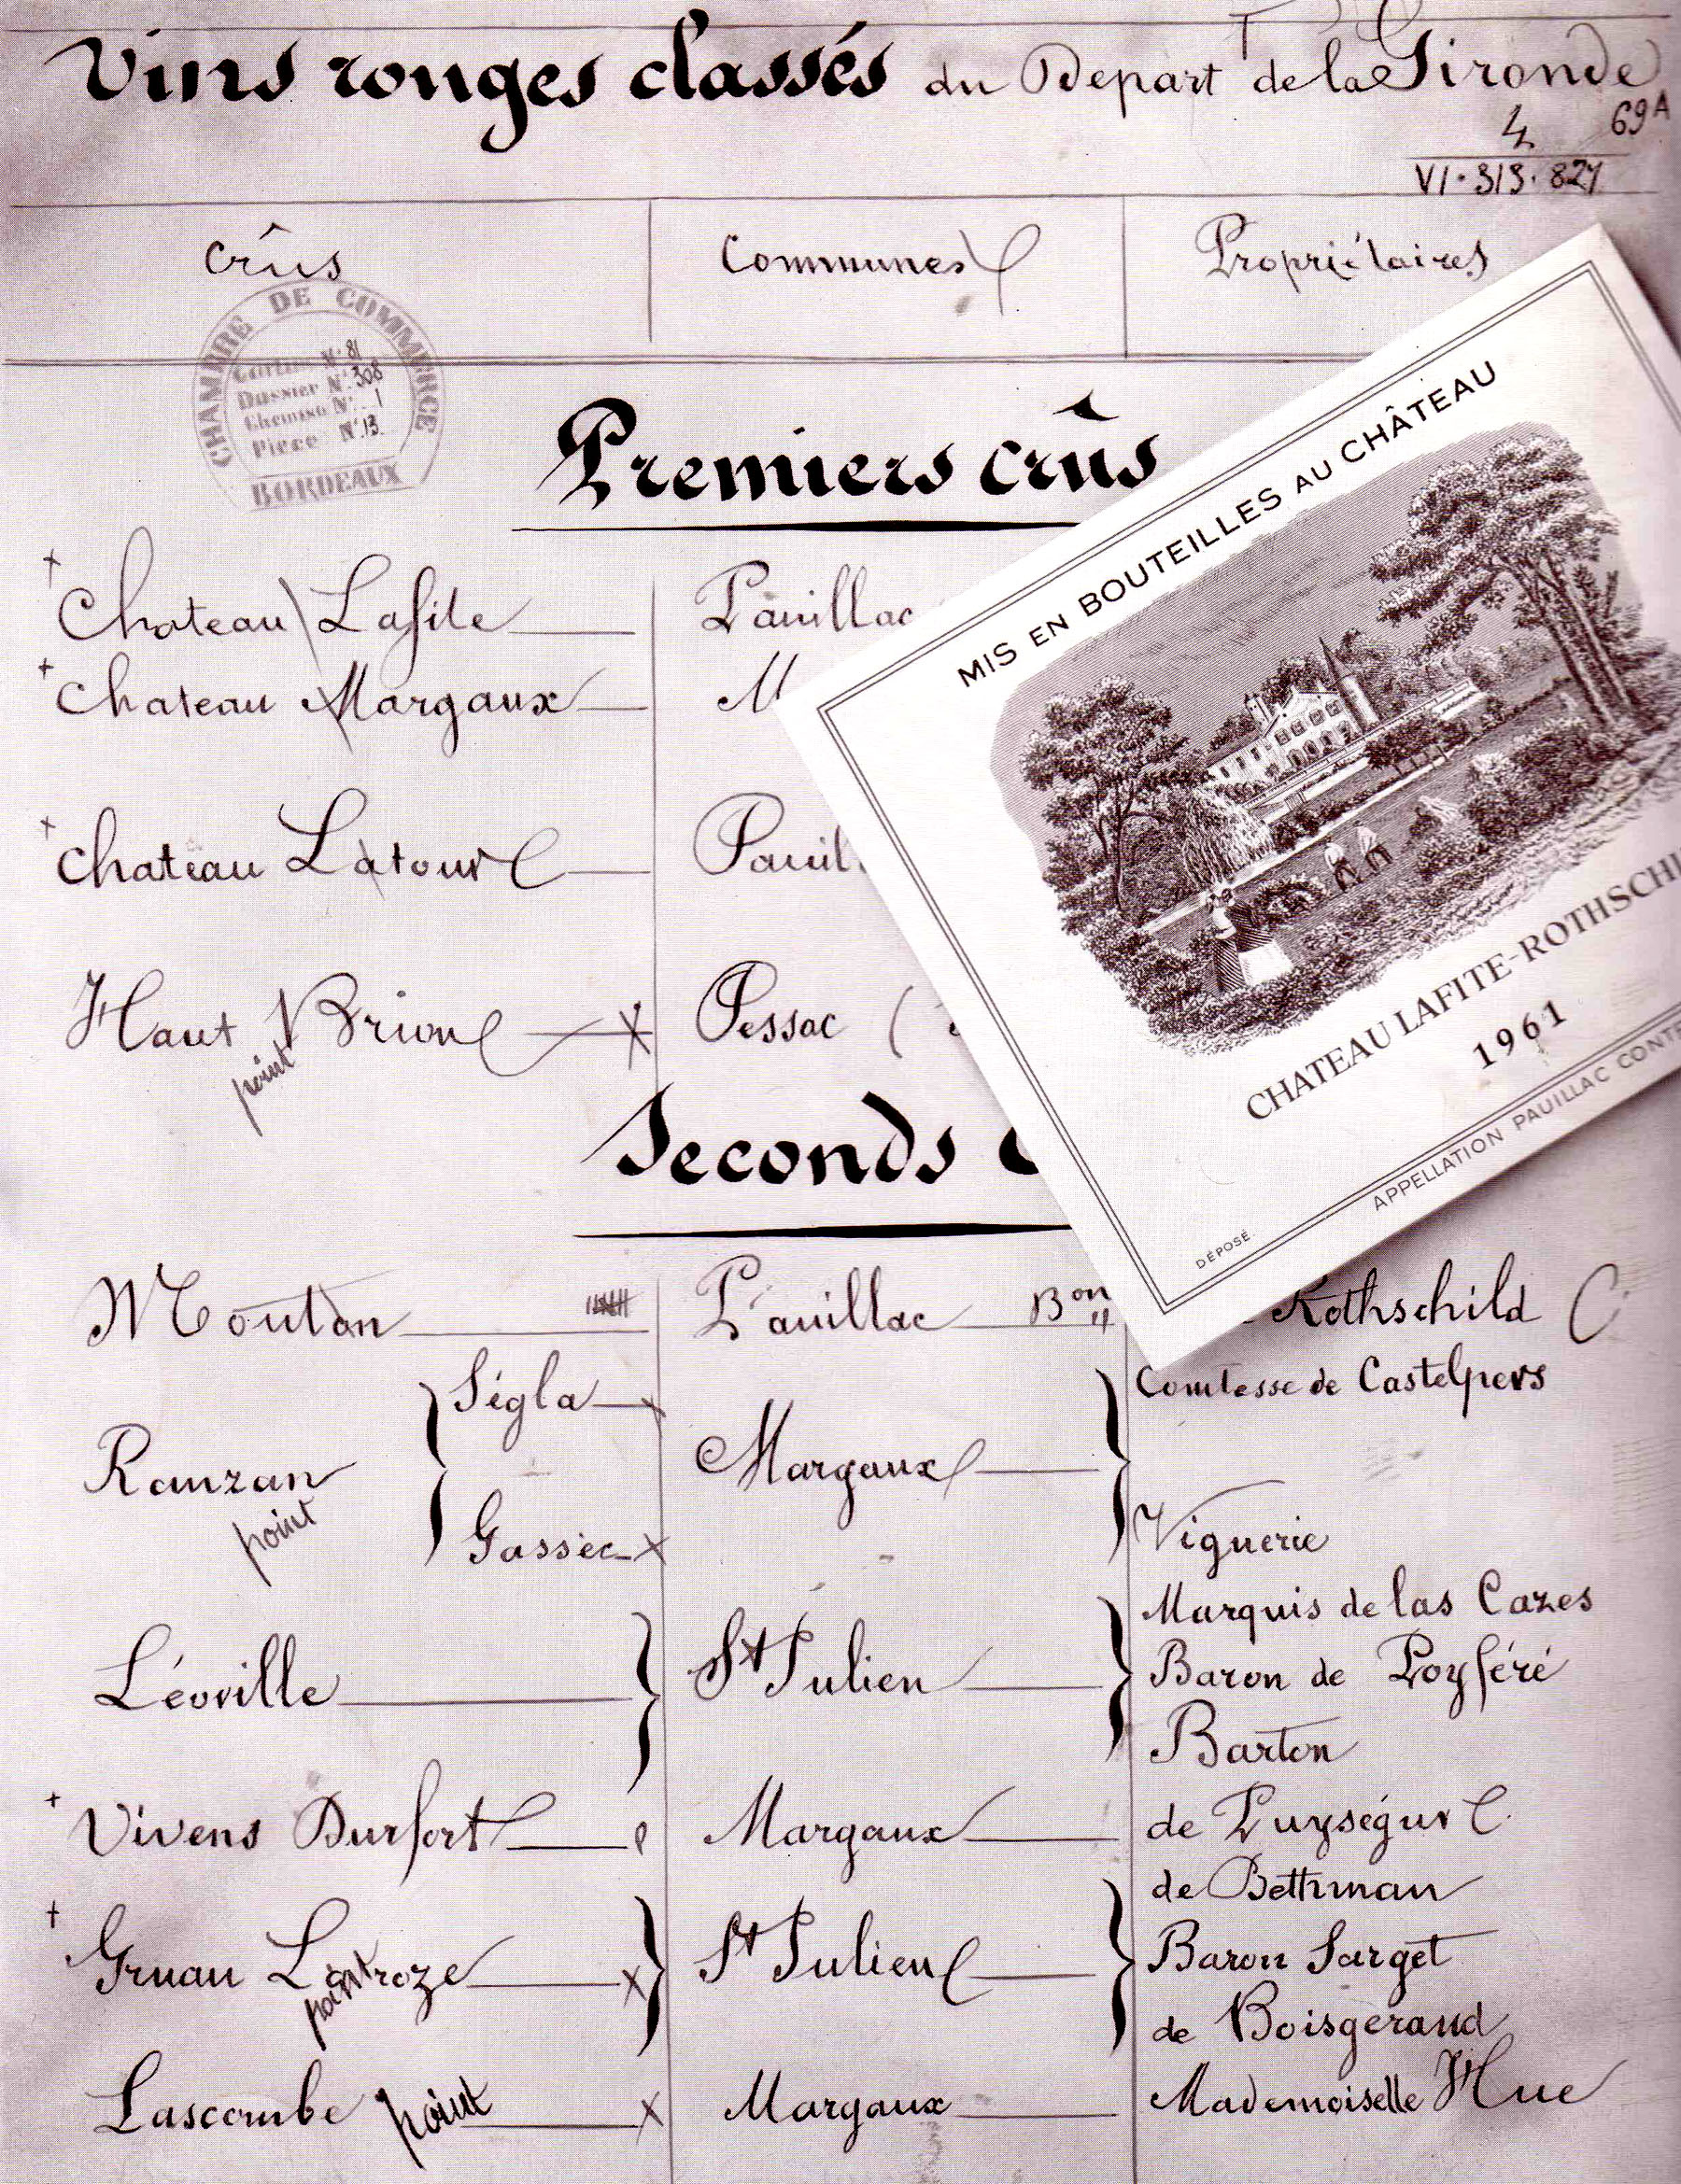 Vins rouges classés du Depart^t de la Gironde
4 69^A
VI·313·827
crûs Communes Propriétaires
CHAMBRE DE COMMERCE
Carton N° 81
Dossier N° 308
Chemise N° 1
Pièce N° 13
BORDEAUX
Premiers crûs
Chateau Lafite Pauillac
Chateau Margaux M
Chateau Latour Pauil
Haut Brion Pessac (
point
MIS EN BOUTEILLES AU CHÂTEAU
CHATEAU LAFITE-ROTHSCHI
1961
APPELLATION PAUILLAC CONT
DÉPOSÉ
Seconds
Mouton Pauillac Bon Rothschild
Rauzan Ségla Margaux Comtesse de Castelpers
point Gassies Viguerie
Léoville St Julien Marquis de las Cazes
Baron de Poyféré
Barton
Vivens Durfort Margaux de Puységur
Gruau Laroze St Julien de Bethman
point Baron Sarget
de Boisgerand
Lascombe point Margaux Mademoiselle Hue